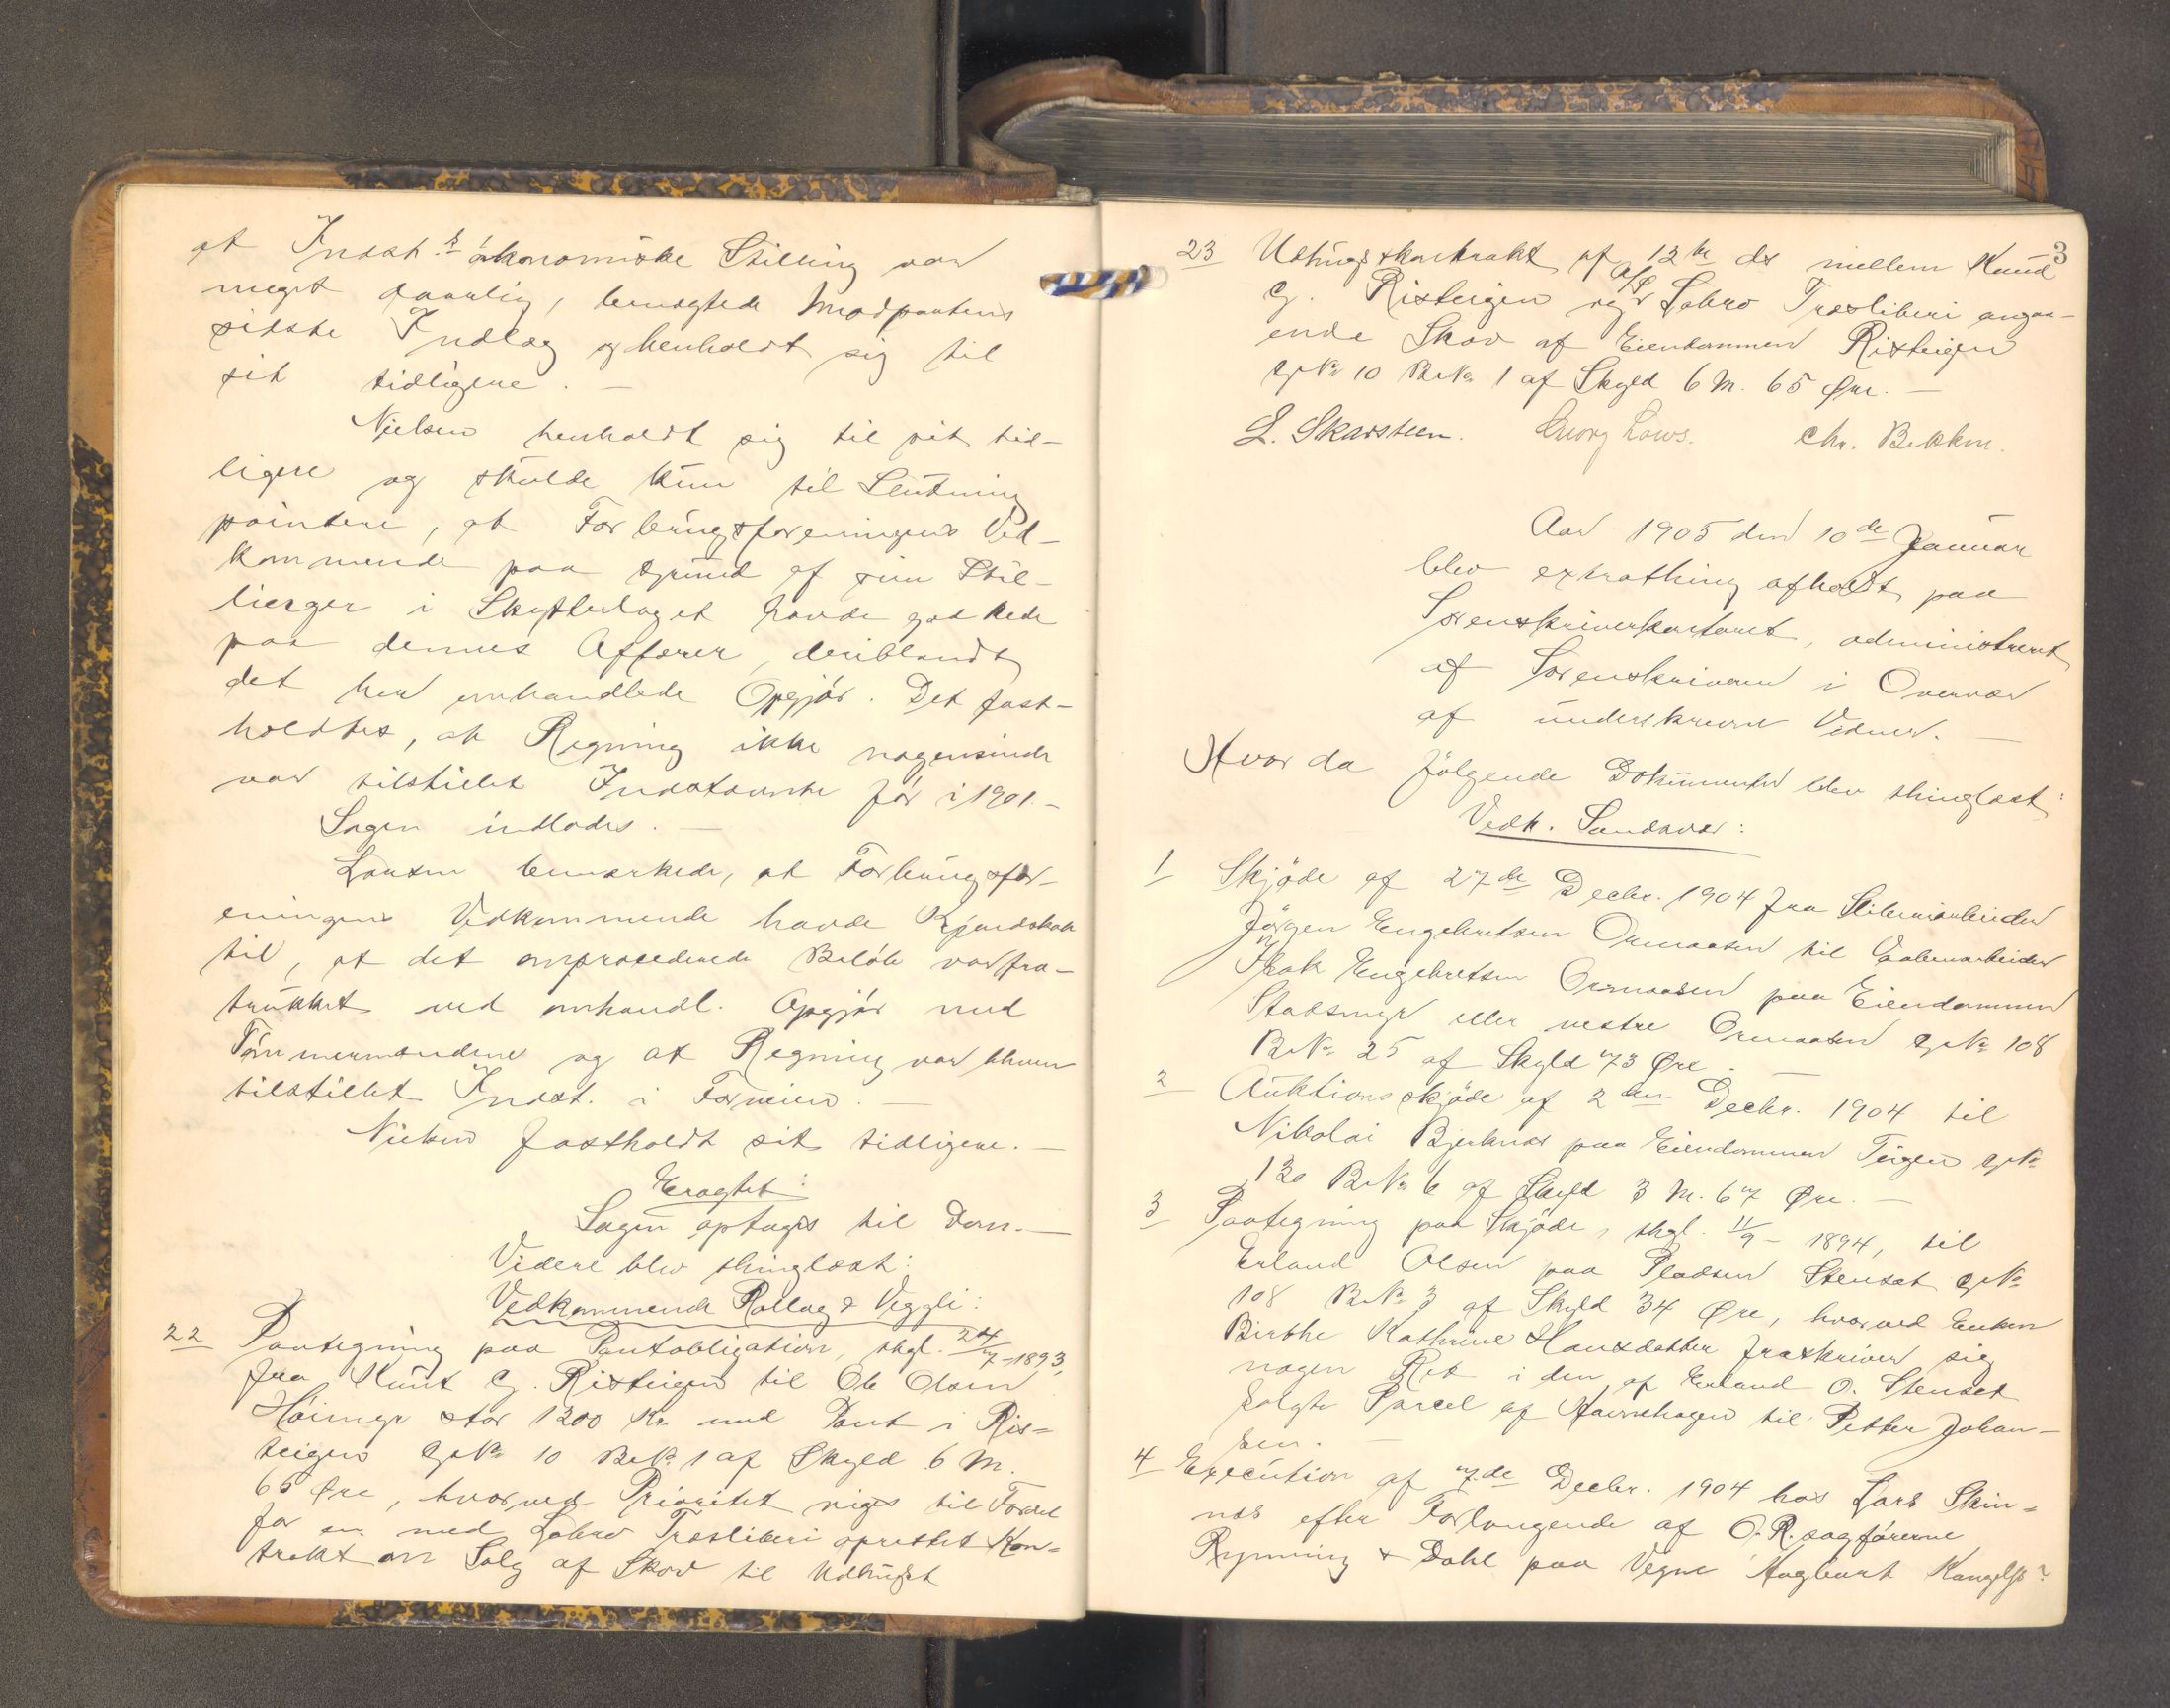 at Indst.s ökonomiske Stilling var
meget daarlig, benægtede Modpartens
sidste Indlæg og henholdt sig til
sit tidligere. —
Nielsen henholdt sig til sit tid-
ligere og skulde kun til Slutning
pointere, at Forbrugsforeningens Ved-
kommende paa Grund af sin Stil-
linger i Skytterlaget havde god Rede
paa dennes Affærer, deriblandt
det her omhandlede Opgjör. Det fast-
holdtes, at Regning ikke nogensinde
var tilstillet Indstævnte för i 1901.—
Sagen indlodes. —
Larsen bemærkede, at Forbrugsfor-
eningens Vedkommende havde Kjendskab
til, at det omprocederede Beløb var fra-
trukket ved omhandl. Opgjör med
Tömmermændene og at Regning var bleven
tilstillet Indst. i Forveien. —
Nielsen fastholdt sit tidligere. —
Eragtet:
Sagen optages til Dom. —
Videre blev thinglæst:
Vedkommende Rollag & Veggli:
22 Paategning paa Pantobligation, thgl. 24/7-1893,
fra Knut G. Risteigen til Ole Olsen
Höimyr stor 1200 Kr. med Pant i Ris=
teigen G.No 10 B.No 1 af Skyld 6 M.
65 Øre, hvorved Prioritet viges til Fordel
for en med Labro Træsliberi oprettet Kon=
trakt om Salg af Skov til Udhugst
3
23 Udhugstkontrakt af 12te ds mellem Knud
G. Risteigen og A/S Labro Træsliberi angaa-
ende Skov af Eiendommen Risteigen
G.No 10 B.No 1 af Skyld 6 M. 65 Øre. —
L. Skarsteen. Georg Lows. Chr. Bekken.
Aar 1905 den 10de Januar
blev extrathing afholdt paa
Sorenskriverkontoret, administreret
af Sorenskriveren i Overvær
af underskrevne Vidner. —
Hvor da fölgende Dokumenter blev thinglæst:
Vedk. Sandsvær:
1 Skjöde af 27de Decbr. 1904 fra Sliberiarbeider
Jörgen Engebretsen Ormaasen til Vaabenarbeider
Isak Engebretsen Ormaasen paa Eiendommen
Stadsmyr eller vestre Ormaasen G.No 108
B.No 25 af Skyld 73 Øre. —
2 Auktionsskjöde af 2den Decbr. 1904 til
Nikolai Bjerknæs paa Eiendommen Teigen G.No
130 B.No 6 af Skyld 3 M. 67 Øre. —
3 Paategning paa Skjöde, thgl. 11/9 - 1894, til
Erland Olsen paa Pladsen Stenset G.No
108 B.No 3 af Skyld 34 Øre, hvorved Enken
Birthe Kathrine Hansdatter fraskriver sig
nogen Ret i den af Erland O. Stenset
solgte Parcel af Havnehagen til Petter Johan-
sen. —
4 Execution af 7de Decbr. 1904 hos Lars Skin=
næs efter Forlangende af O.R. sagförerne
Rynning & Dahl paa Vegne Hagbart